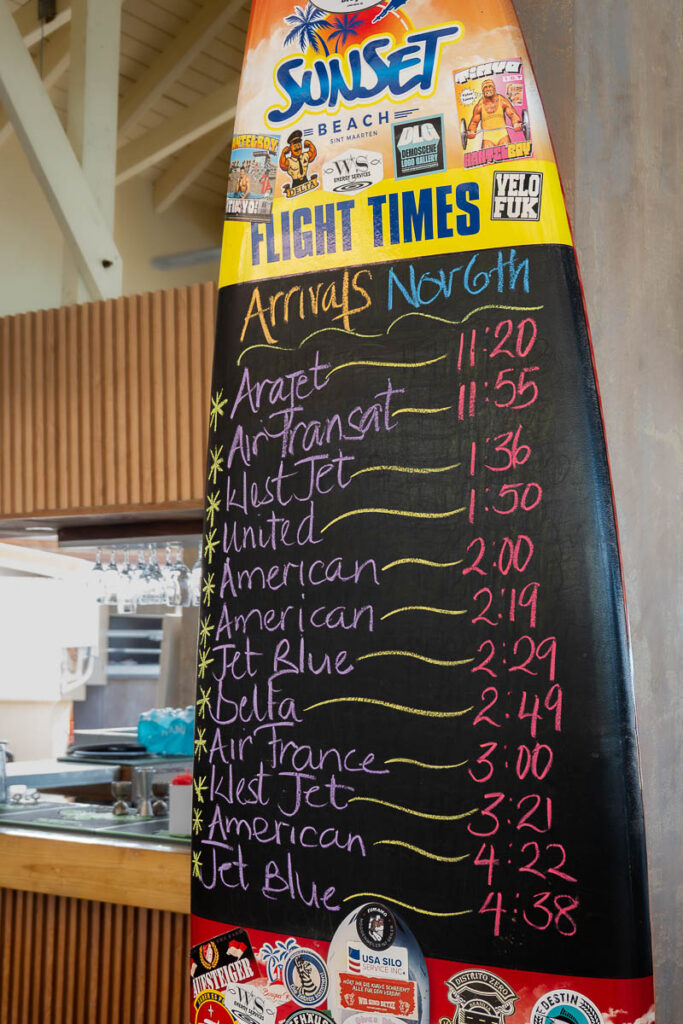 SUNSET
BEACH
SINT MAARTEN
TINYO
HANTELBOY
DELTA
W&S
ENERGY SERVICES
DLG
DEMOSCENE
LOGO GALLERY
VELO
FUK
FLIGHT TIMES
Arrivals Nov 6th
Arajet 11:20
Air Transat 11:55
West Jet 1:36
United 1:50
American 2:00
American 2:19
Jet Blue 2:29
Delta 2:49
Air France 3:00
West Jet 3:21
American 4:22
Jet Blue 4:38
USA SILO
SERVICE INC.
WIR SIND BETZE
DISTRITO ZERO
DESTIN